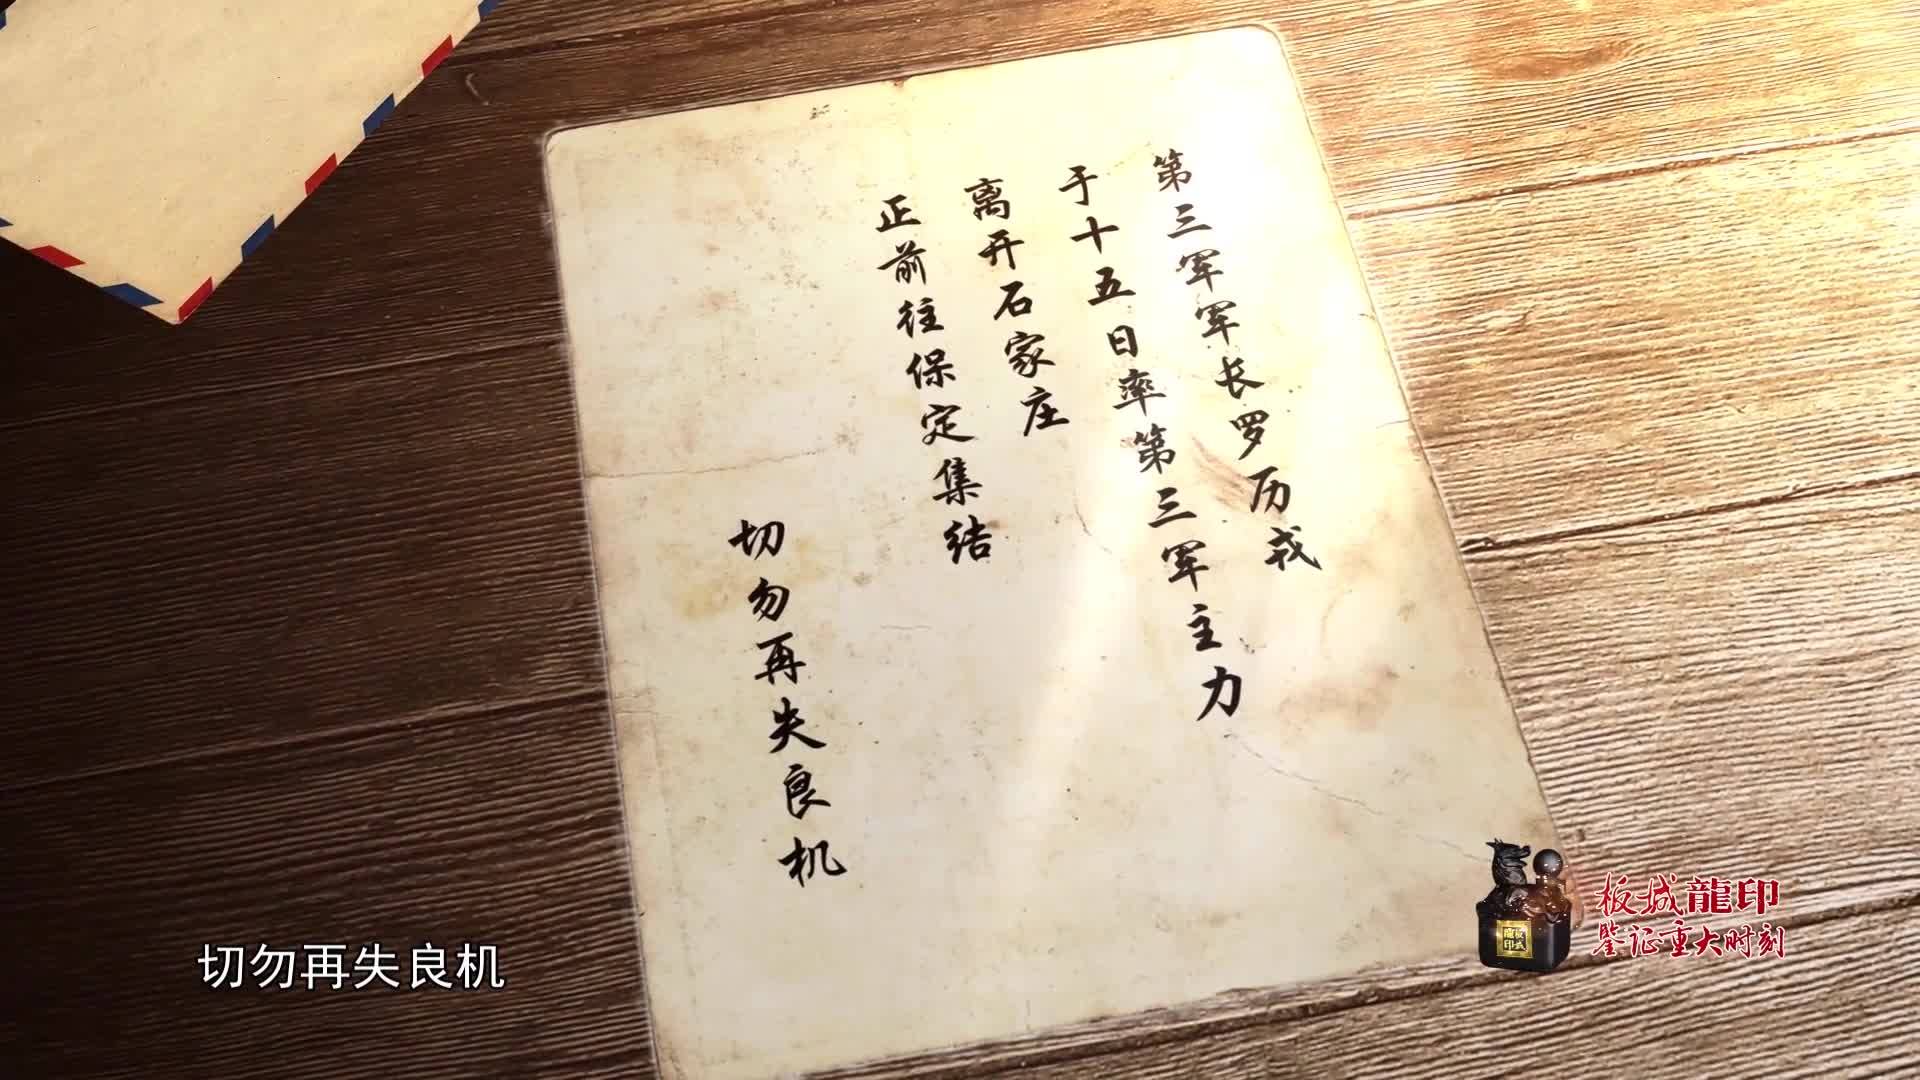 第三军军长罗历戎
于十五日率第三军主力
离开石家庄
正前往保定集结
切勿再失良机
切勿再失良机
板城龍印
鉴证重大时刻